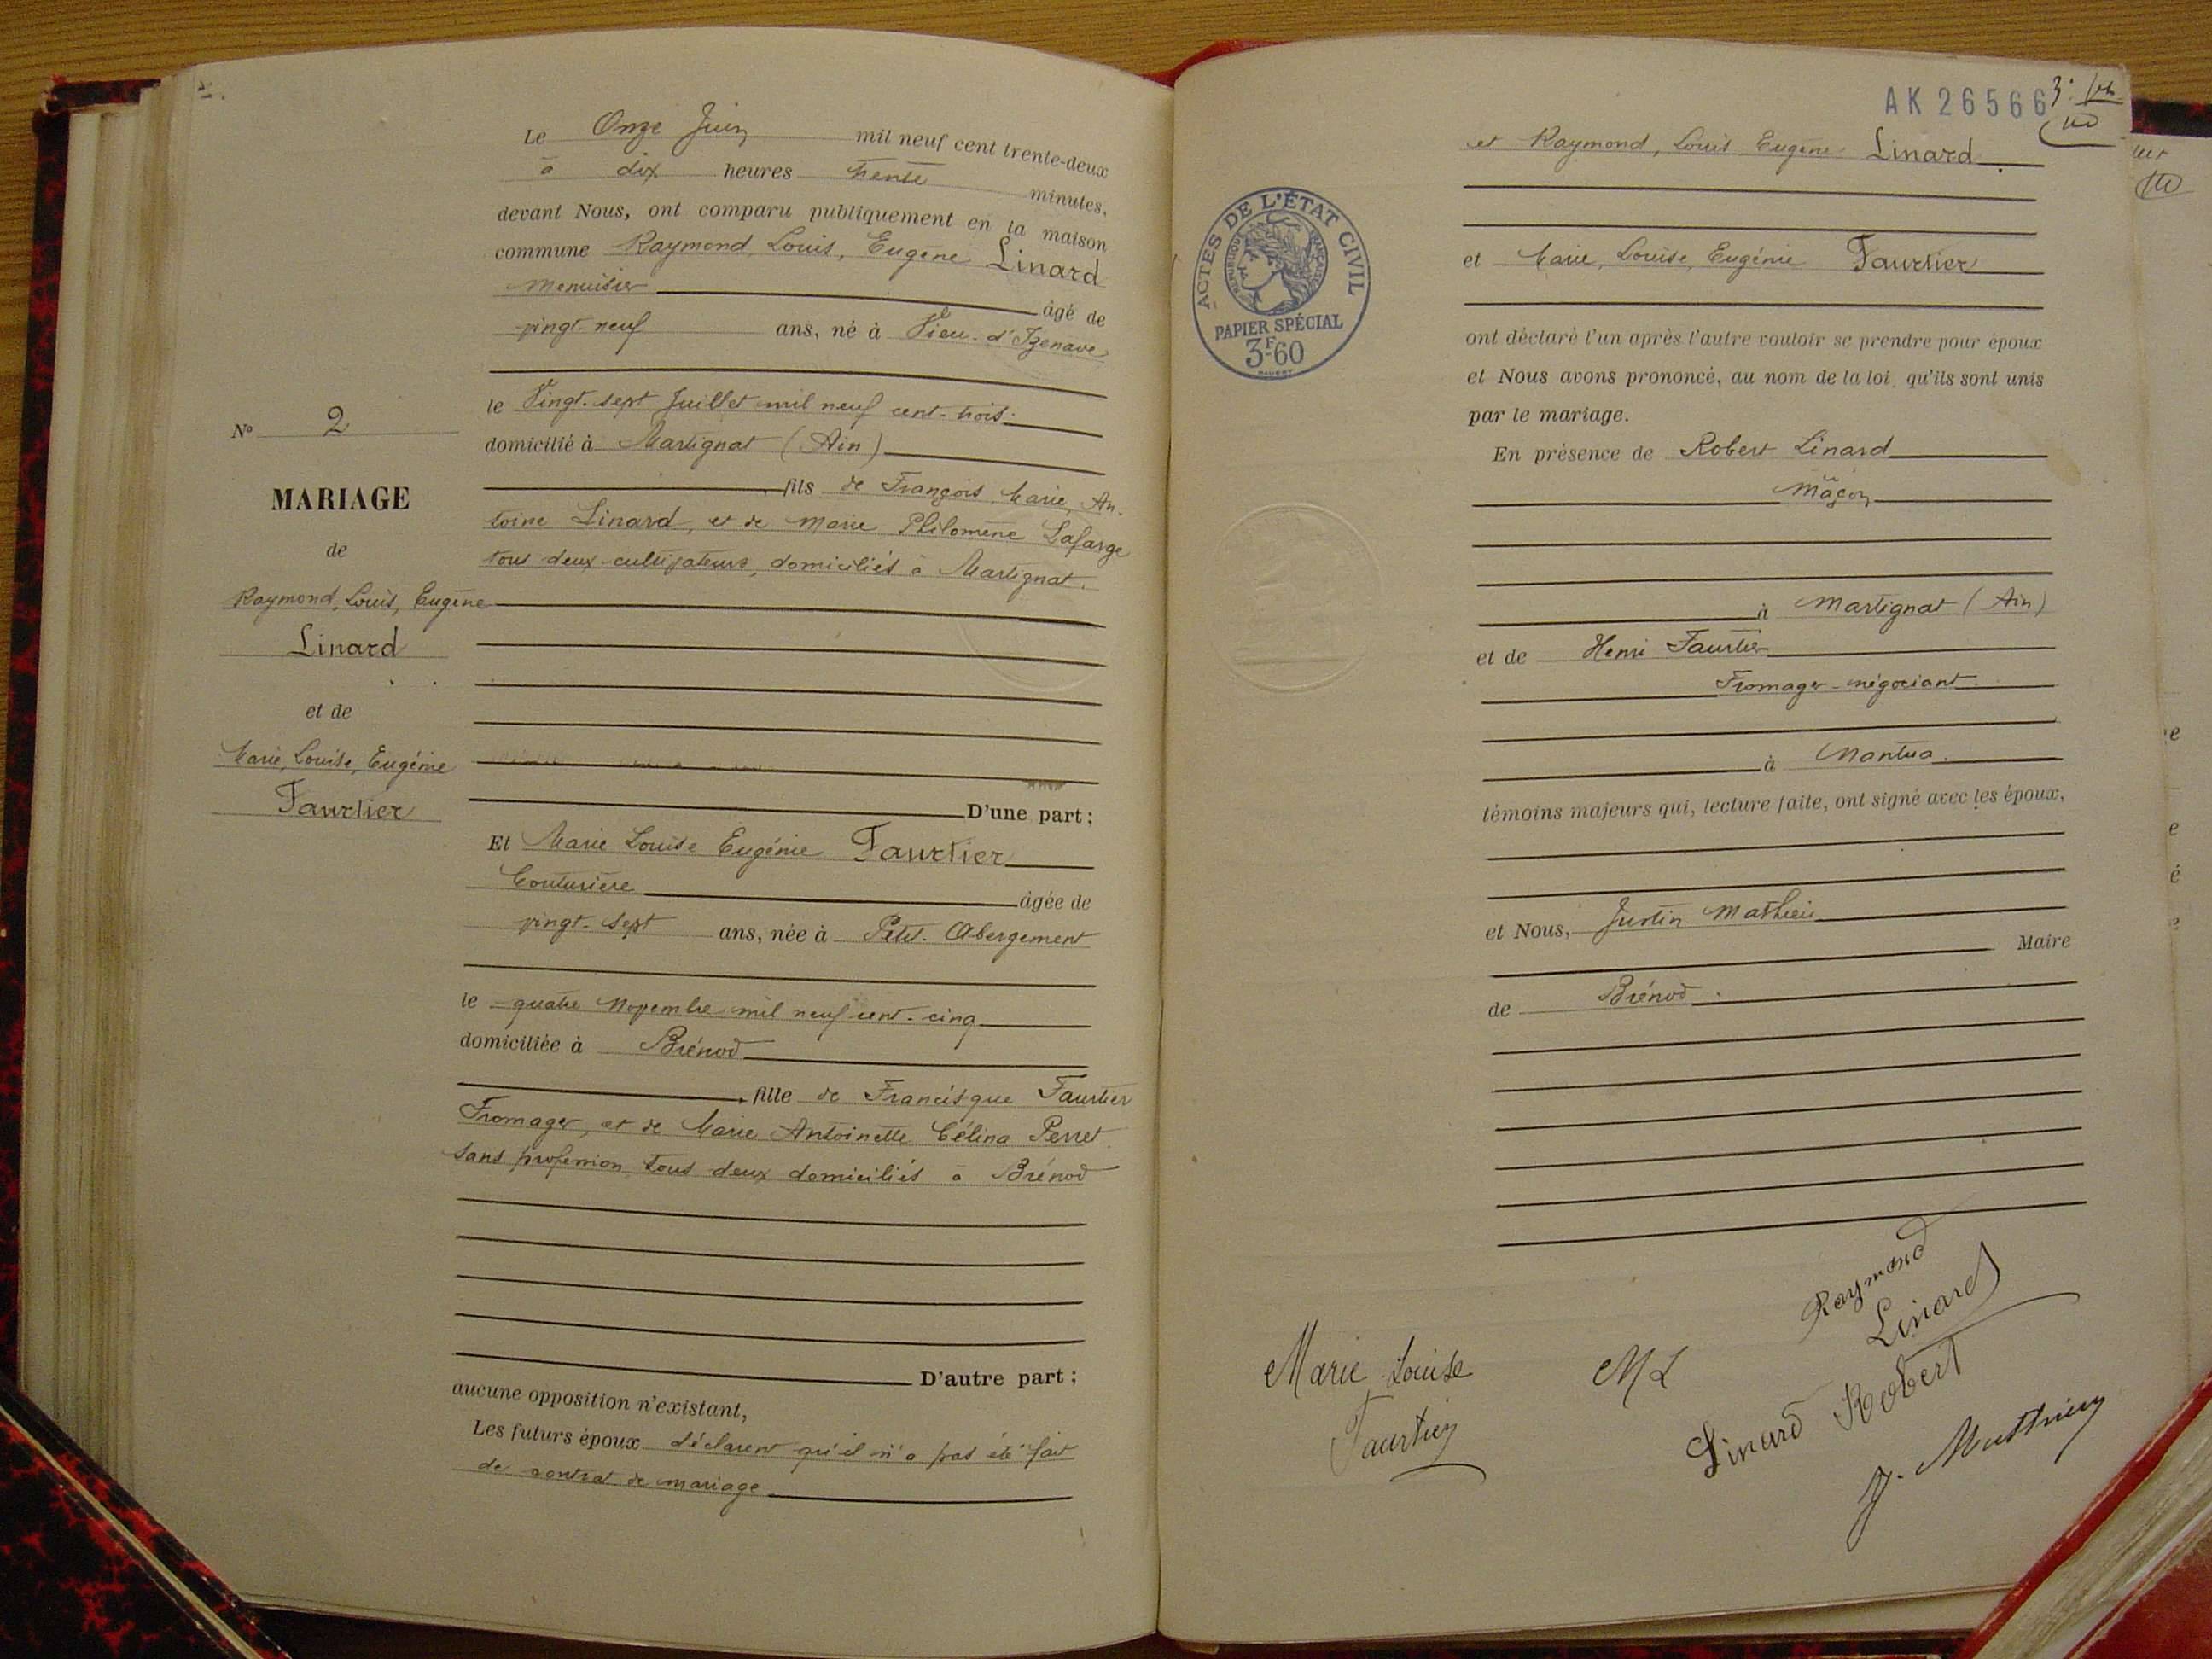 Le Onze Juin mil neuf cent trente-deux
à dix heures trente minutes,
devant Nous, ont comparu publiquement en la maison
commune Raymond, Louis, Eugène Linard
menuisier âgé de
vingt-neuf ans, né à Vieu-d'Izenave
le Vingt-sept Juillet mil neuf cent-trois
domicilié à Martignat (Ain)
fils de François, Marie, An-
toine Linard, et de Marie Philomène Lafarge
tous deux cultivateurs, domiciliés à Martignat.
D'une part;
Nº 2
MARIAGE
de
Raymond, Louis, Eugène
Linard
et de
Marie, Louise, Eugénie
Faurtier
Et Marie Louise Eugénie Faurtier
Couturière âgée de
vingt-sept ans, née à Petit-Abergement
le quatre Novembre mil neuf cent-cinq
domiciliée à Brénod
fille de Francisque Faurtier
Fromager, et de Marie Antoinette Célina Perret
sans profession tous deux domiciliés à Brénod
D'autre part;
aucune opposition n'existant,
Les futurs époux déclarent qu'il n'a pas été fait
de contrat de mariage
AK 26566
et Raymond, Louis Eugène Linard
ACTES DE L'ÉTAT CIVIL
RÉPUBLIQUE FRANÇAISE
PAPIER SPÉCIAL
3F60
et Marie, Louise, Eugénie Faurtier
ont déclaré l'un après l'autre vouloir se prendre pour époux
et Nous avons prononcé, au nom de la loi, qu'ils sont unis
par le mariage.
En présence de Robert Linard
Maçon
à Martignat (Ain)
et de Henri Faurtier
Fromager-négociant
à Nantua
témoins majeurs qui, lecture faite, ont signé avec les époux,
et Nous, Justin Mathieu
Maire
de Brénod.
Raymond
Linard
Marie Louise
Faurtier
ML
Linard Robert
J. Matthieu